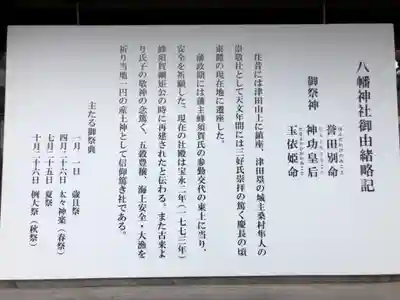 八幡神社御由緒略記
御祭神
誉田別命
ほんだわけのみこと
神功皇后
じんぐうこうごう
玉依姫命
たまよりひめのみこと
往昔には津田山上に鎮座、津田塁の城主桑村隼人の
崇敬社として天文年間には三好氏崇拝の篤く慶長の頃
東麓の現在地に遷座した。
藩政期には藩主蜂須賀氏の参勤交代の東上に当り、
安全を祈願した。現在の社殿は宝永二年(一七七三年)
蜂須賀綱矩公の時に再建されたと伝わる。また古来よ
り氏子の敬神の念篤く、五穀豊穣、海上安全・大漁を
祈り当地一円の産土神として信仰篤き社である。
主たる御祭典
一月 一日 歳旦祭
四月二十六日 太々神楽(春祭)
七月二十五日 夏祭
十月二十六日 例大祭(秋祭)